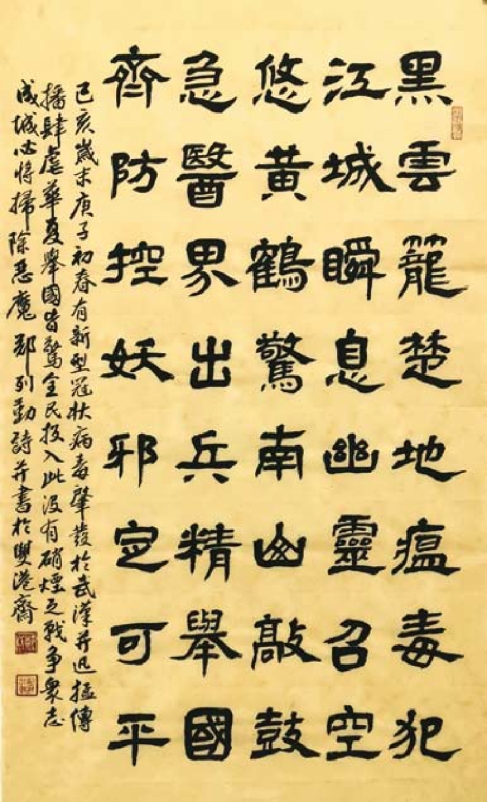 黑雲籠楚地瘟毒犯
江城瞬息幽靈召空
悠黄鶴驚南山敲鼓
急醫界出兵精舉國
齊防控妖邪定可平
己亥歲末庚子初春有新型冠狀病毒肇發於武漢并迅猛傳
播肆虐華夏舉國皆驚全民投入此没有硝煙之戰争衆志
成城必將掃除惡魔 列勤詩并書於雙港齋